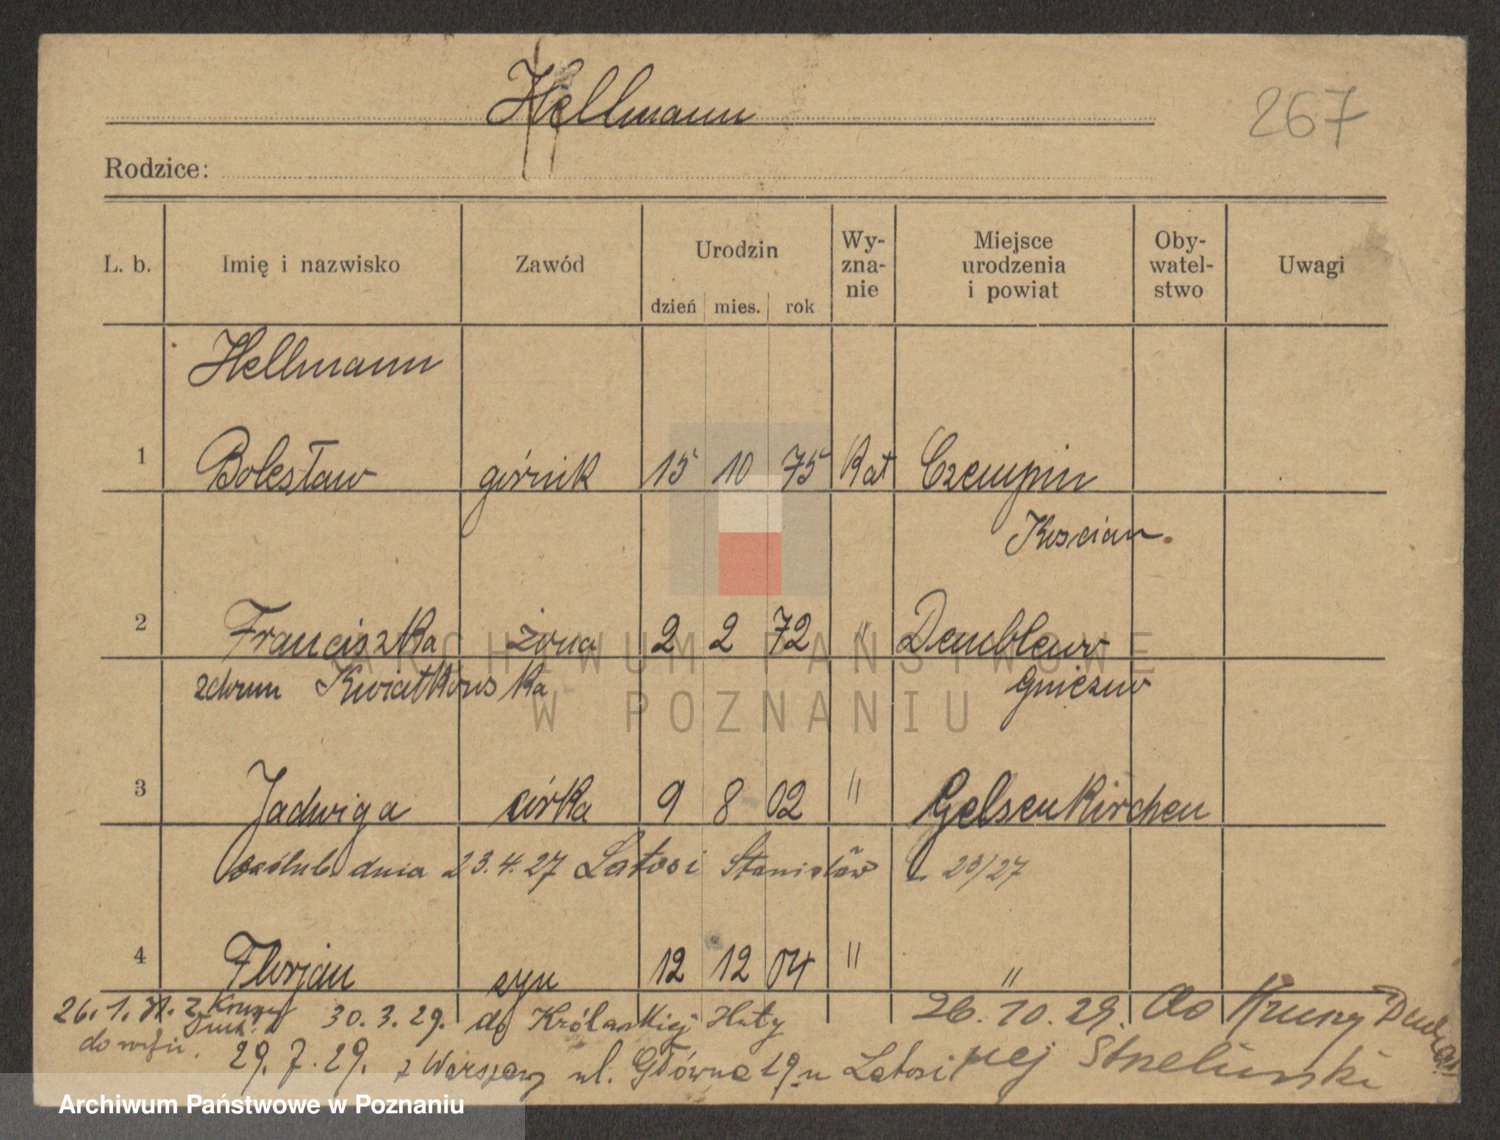 Hellmann
267
Rodzice:
L. b. Imię i nazwisko Zawód Urodzin dzień mies. rok Wy-zna-nie Miejsce urodzenia i powiat Oby-watel-stwo Uwagi
Hellmann
1 Bolesław górnik 15 10 75 Kat Czempin
Kościan
2 Franciszka żona 2 2 72 " Demblewo
zdomu Kwiatkowska Gniezno
3 Jadwiga córka 9 8 02 " Gelsenkirchen
zaślub. dnia 23.4.27 Latosi Stanisław L. 23/27
4 Florjan syn 12 12 04 " "
26.1.31. z Kruszy
30.3.29. do Królewskiej Huty
26.10.29. do Kruszy
29.7.29. z Warszawy ul. Główna 19 u Latosi
ARCHIWUM PAŃSTWOWE
W POZNANIU
Archiwum Państwowe w Poznaniu